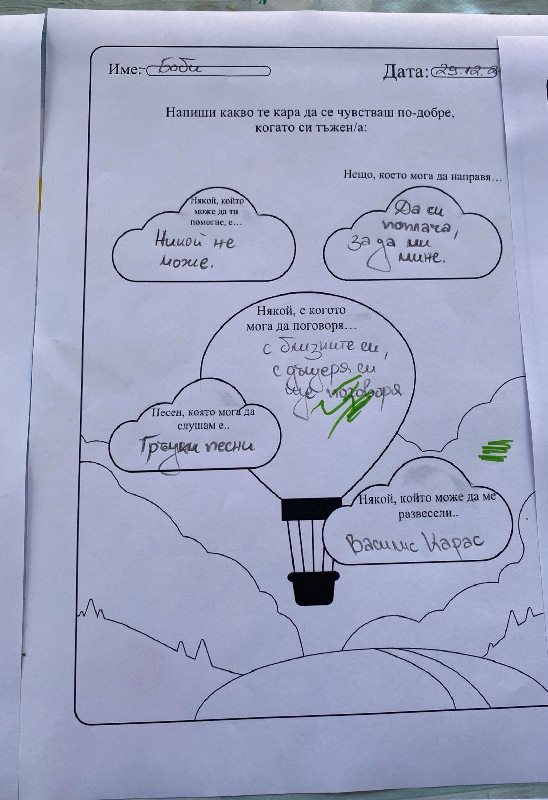 Име: Боби
Дата: 29.12.2
Напиши какво те кара да се чувстваш по-добре,
когато си тъжен/а:
Някой, който
може да ти
помогне, е…
Никой не
може.
Нещо, което мога да направя…
Да си
поплача,
за да ми
мине.
Някой, с когото
мога да поговоря…
с близните си,
с дъщеря си
ще поговоря
Песен, която мога да
слушам е..
Гръцки песни
Някой, който може да ме
развесели..
Василис Карас